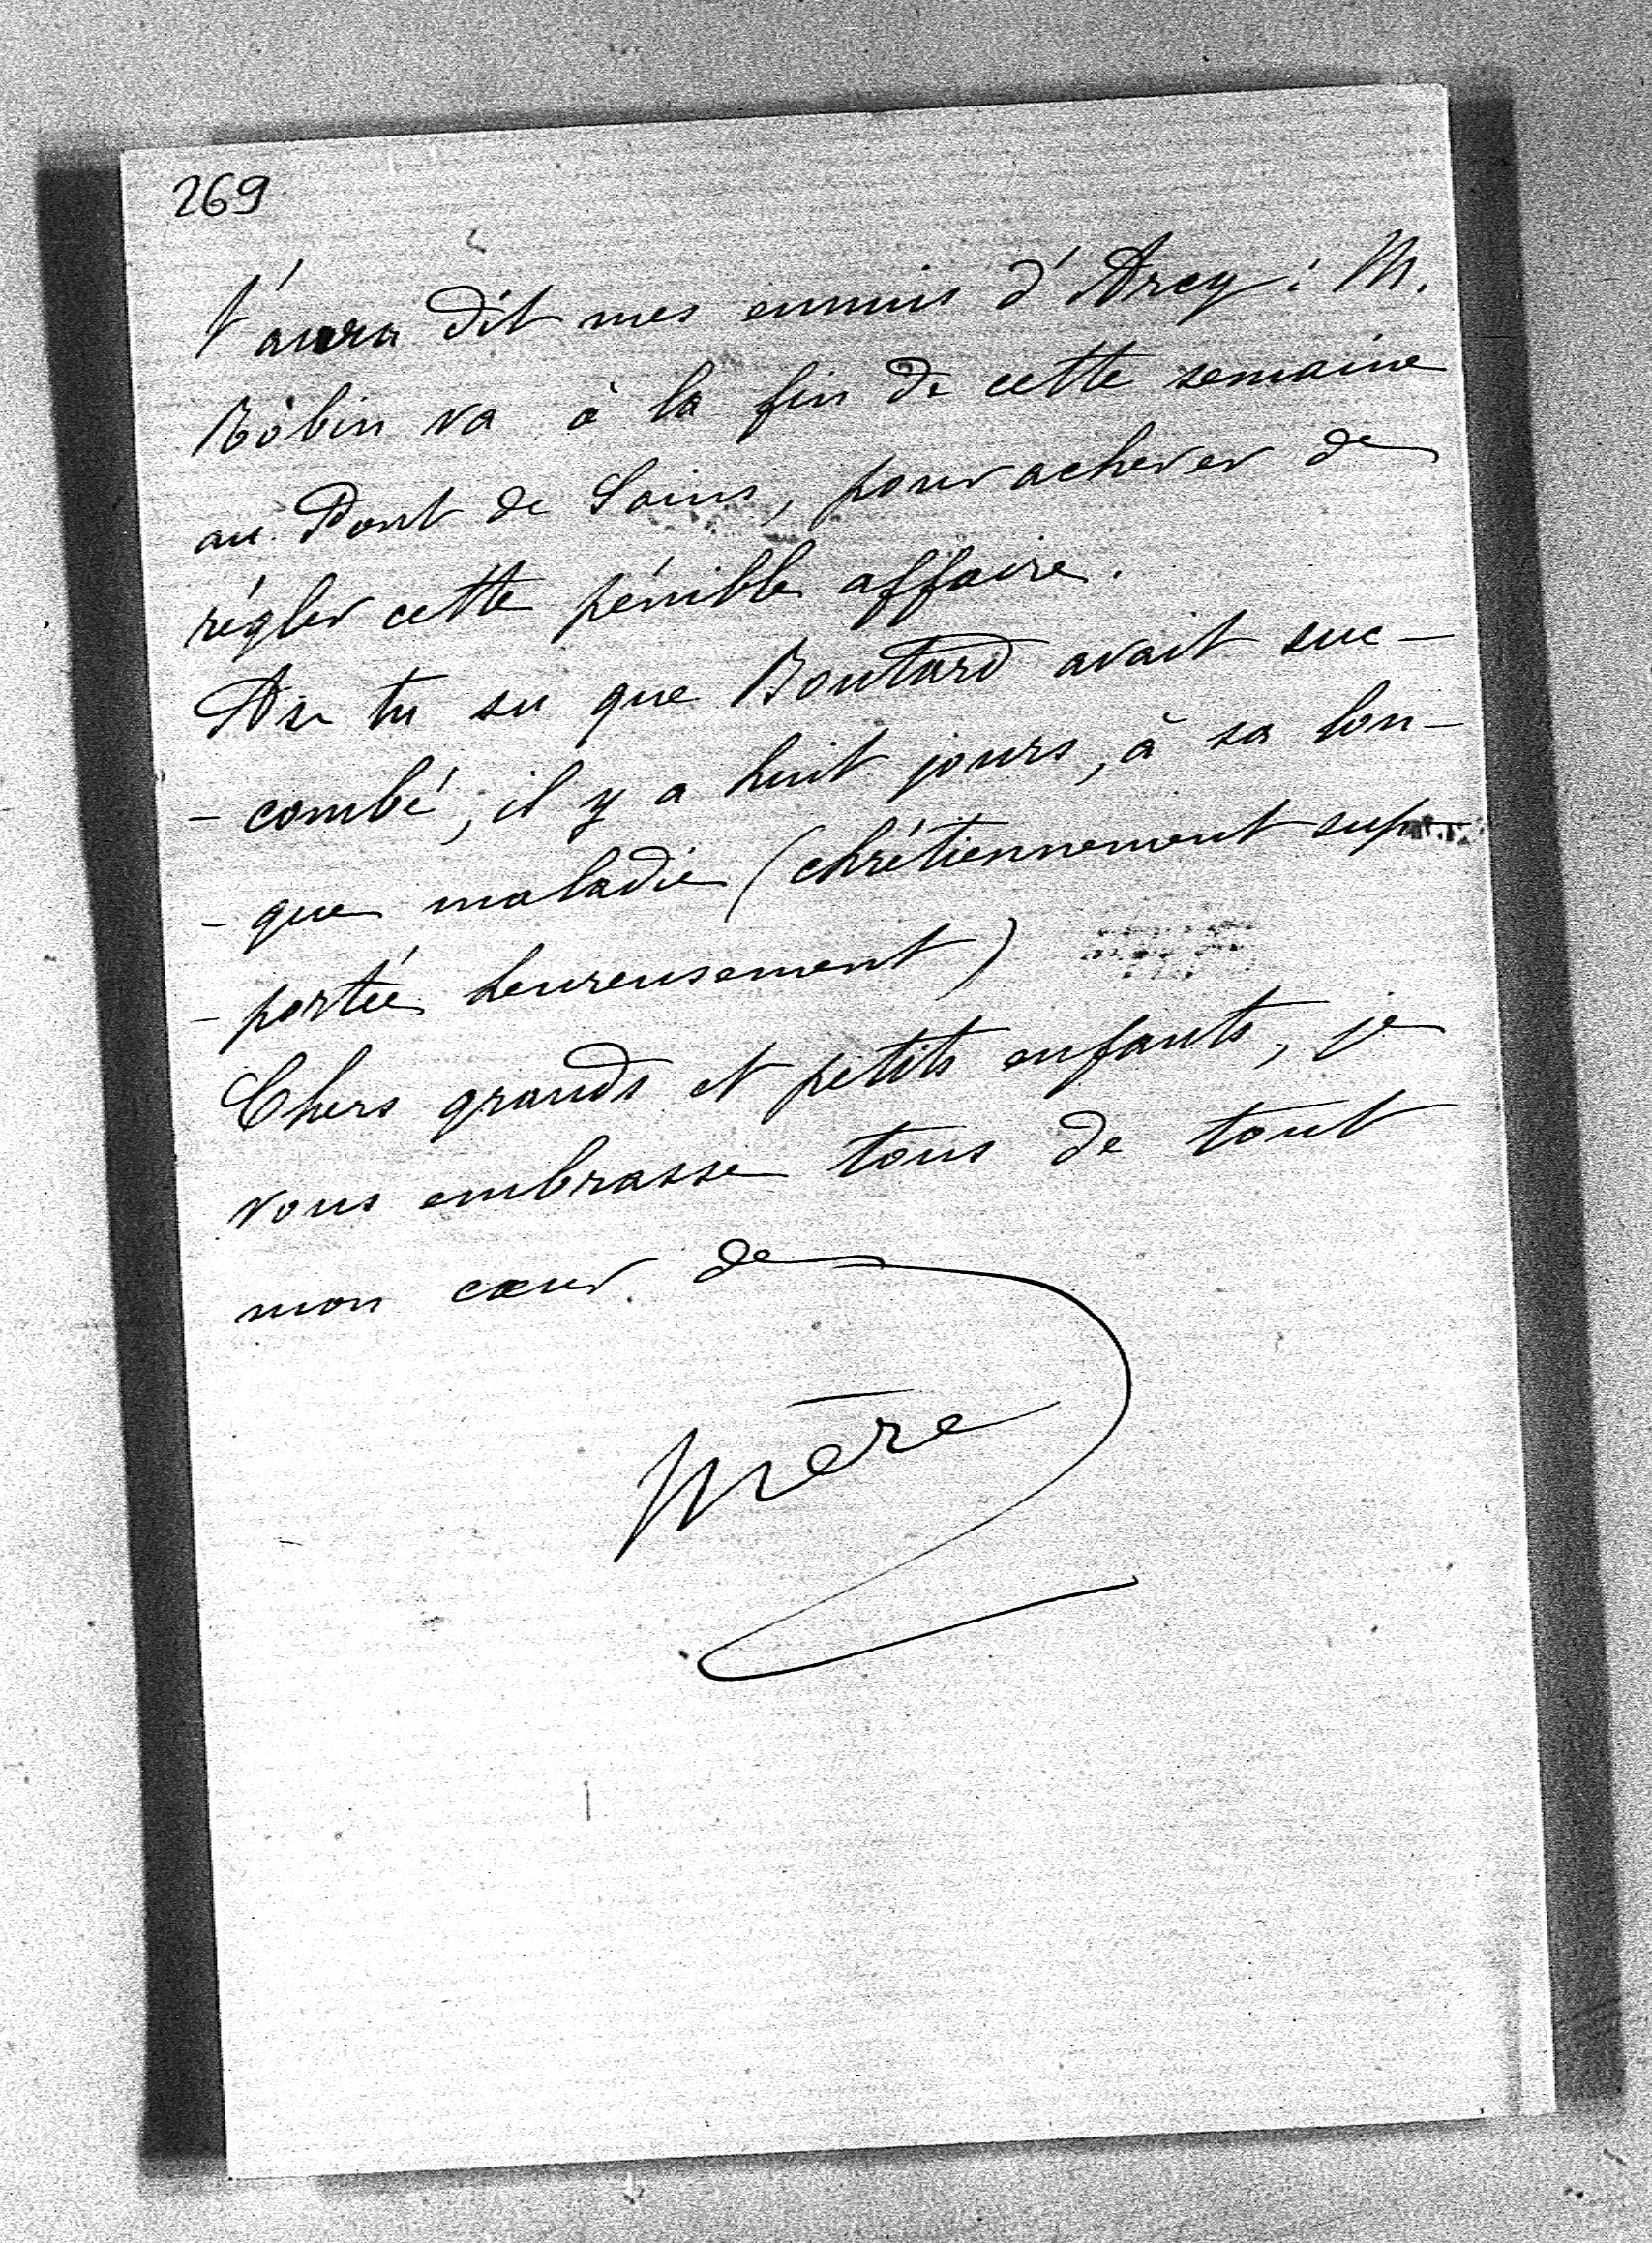 269
t'aura dit mes ennuis d'Arcy : M.
Robin va à la fin de cette semaine
au Pont de Sains, pour achever de
régler cette pénible affaire.
As tu su que Boutard avait suc-
-combé, il y a huit jours, à sa lon-
-gue maladie (chrétiennement sup-
-portée heureusement)
Chers grands et petits enfants, je
vous embrasse tous de tout
mon cœur de
Mère